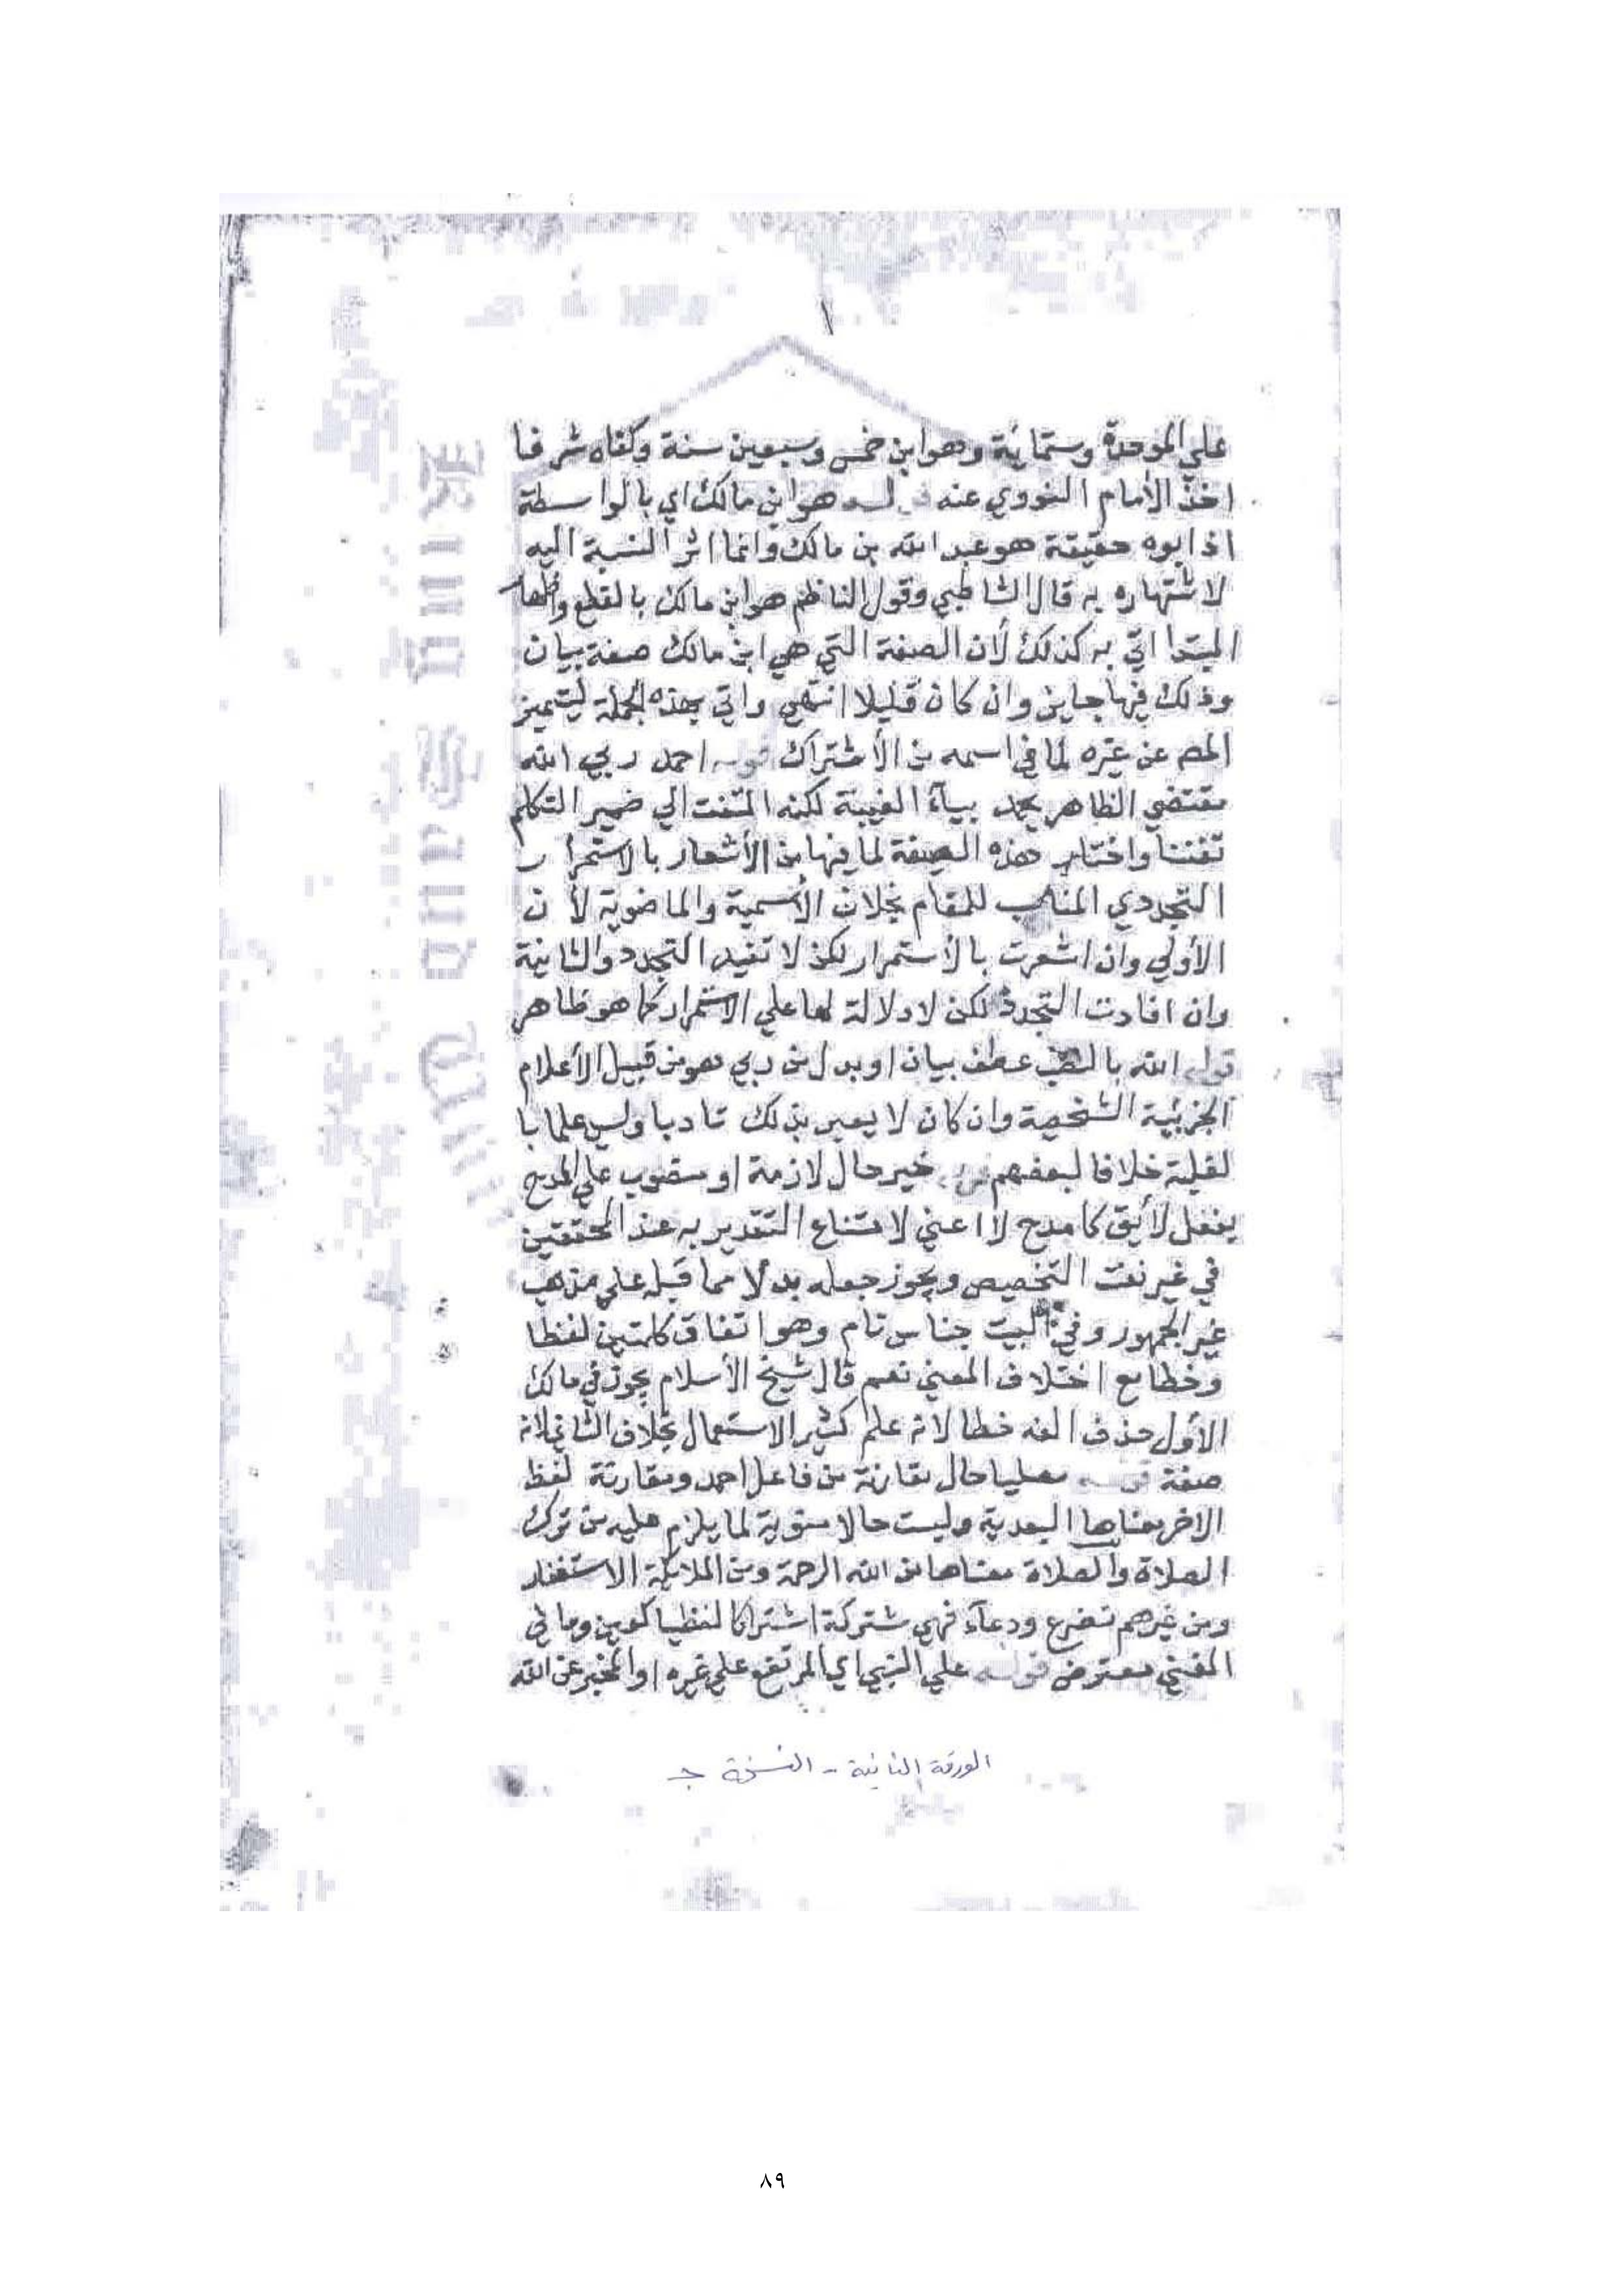 ١
علي الموحدة وستمائة وهو ابن خمس وسبعين سنة وكفاه شرفا
اخذ الأمام النووي عنه قوله هو ابن مالك اي بالواسطة
اذ ابوه حقيقة هو عبد الله بن مالك وانما اثر النسبة اليه
لاشتهاره به قال الشاطبي وقول الناظم هو ابن مالك بالقطع واظهار
المبتدا اتي به كذلك لأن الصفة التي هي ابن مالك صفة بيان
وذلك فيها جايز وان كان قليلا انتهي واتي بهذه الجملة ليتميز
المص عن غيره لما في اسمه من الأشتراك قوله احمد ربي الله
مقتضي الظاهر يحمد بيآء الغيبة لكنه التفت الي ضمير التكلم
تفننا واختار هذه الصيغة لما فيها من الأشعار بالاستمرار
التجددي المناسب للمقام بخلاف الأسمية والماضوية لأن
الأولي وان اشعرت بالأستمرار لكن لا تفيد التجدد والثانية
وان افادت التجدد لكن لا دلالة لها علي الاستمرار كما هو ظاهر
قوله الله بالنصب عطف بيان او بدل من ربي وهو من قبيل الأعلام
الجزئية الشخصية وان كان لا يعبر بذلك تادبا وليس علما با
لغلبة خلافا لبعضهم قوله خير حال لازمة او منصوب علي المدح
بفعل لأيق كامدح لا اعني لامتناع التقدير به عند المحققين
في غير نعت التخصيص ويجوز جعله بدلا مما قبله علي مذهب
غير الجمهور وفي البيت جناس تام وهو اتفاق كلمتين لفظا
وخطا مع اختلاف المعني نعم قال شيخ الأسلام يجوز في مالك
الأول حذف الفه خطا لانه علم كثير الاستعمال بخلاف الثاني لانه
صفة قوله مصليا حال مقارنة من فاعل احمد ومقارنة لفظ
الاخر معناها البعدية وليست حالا منوية لما يلزم عليه من ترك
الصلاة والصلاة معناها من الله الرحمة ومن الملائكة الاستغفار
ومن غيرهم تضرع ودعآء فهي مشتركة اشتراكا لفظيا كعين وما في
المغني معترض قوله علي النبي اي المرتفع علي غيره او المخبر عن الله
الورقة الثانية - النسخة جـ
King Saud
٨٩